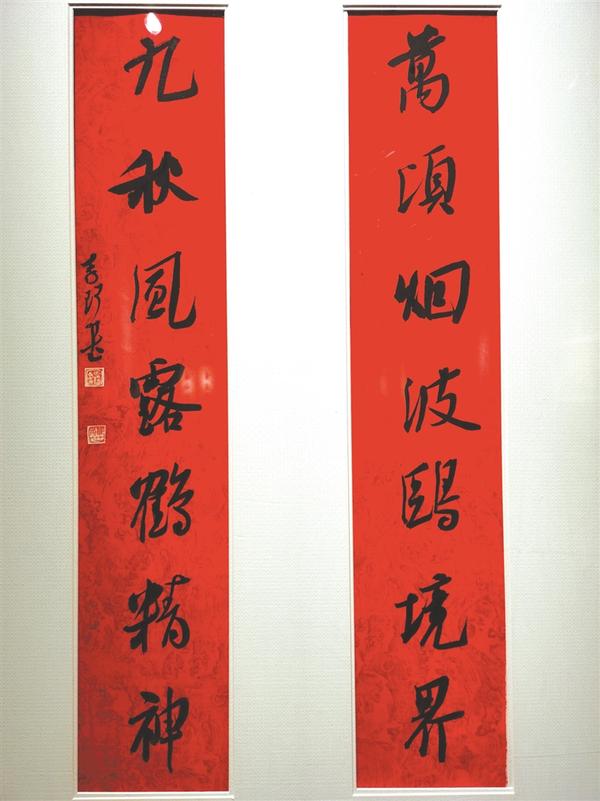 萬頃烟波鷗境界
九秋風露鶴精神